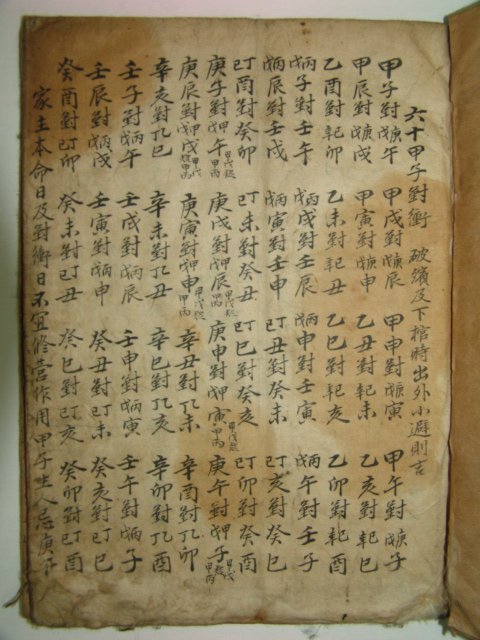 六十甲子對衝 破殯及下棺時出外小避則吉
甲子對戊庚午 甲戌對戊庚辰 甲申對戊庚寅 甲午對戊庚子
甲辰對戊庚戌 甲寅對戊庚申 乙丑對己辛未 乙亥對己辛巳
乙酉對己辛卯 乙未對己辛丑 乙巳對己辛亥 乙卯對己辛酉
戊丙子對壬午 戊丙戌對壬辰 戊丙申對壬寅 戊丙午對壬子
戊丙辰對壬戌 戊丙寅對壬申 己丁丑對癸未 己丁亥對癸巳
己丁酉對癸卯 己丁未對癸丑 己丁巳對癸亥 己丁卯對癸酉
庚子對戊甲午 庚戌對戊甲辰 庚申對戊甲寅 庚午對戊甲子
庚辰對戊甲戌 庚寅對戊甲申 辛丑對己乙未 辛酉對己乙卯
辛亥對己乙巳 辛未對己乙丑 辛巳對己乙亥 辛卯對己乙酉
壬子對戊丙午 壬戌對戊丙辰 壬申對戊丙寅 壬午對戊丙子
壬辰對戊丙戌 壬寅對戊丙申 癸丑對己丁未 癸亥對己丁巳
癸酉對己丁卯 癸未對己丁丑 癸巳對己丁亥 癸卯對己丁酉
家主本命日及對衝日不宜修營作用甲子生人忌庚